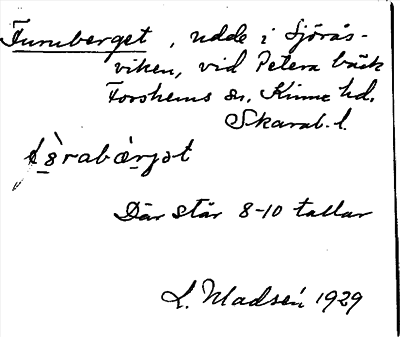 Furuberget, udde i Sjörås-
viken, vid Petersbäck
Forshems sn. Kinne hd.
Skarab. l.
Där står 8-10 tallar
L. Madsén 1929